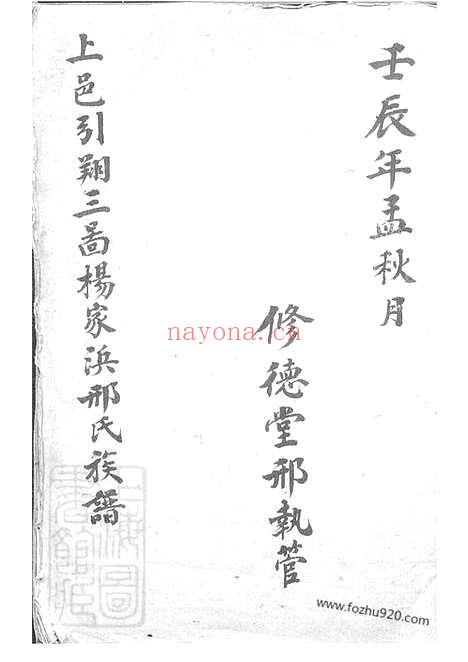 壬辰年孟秋月
修德堂邢執管
上邑引翔三啚楊家浜邢氏族譜
nayona.cn
www.fozhu920.com